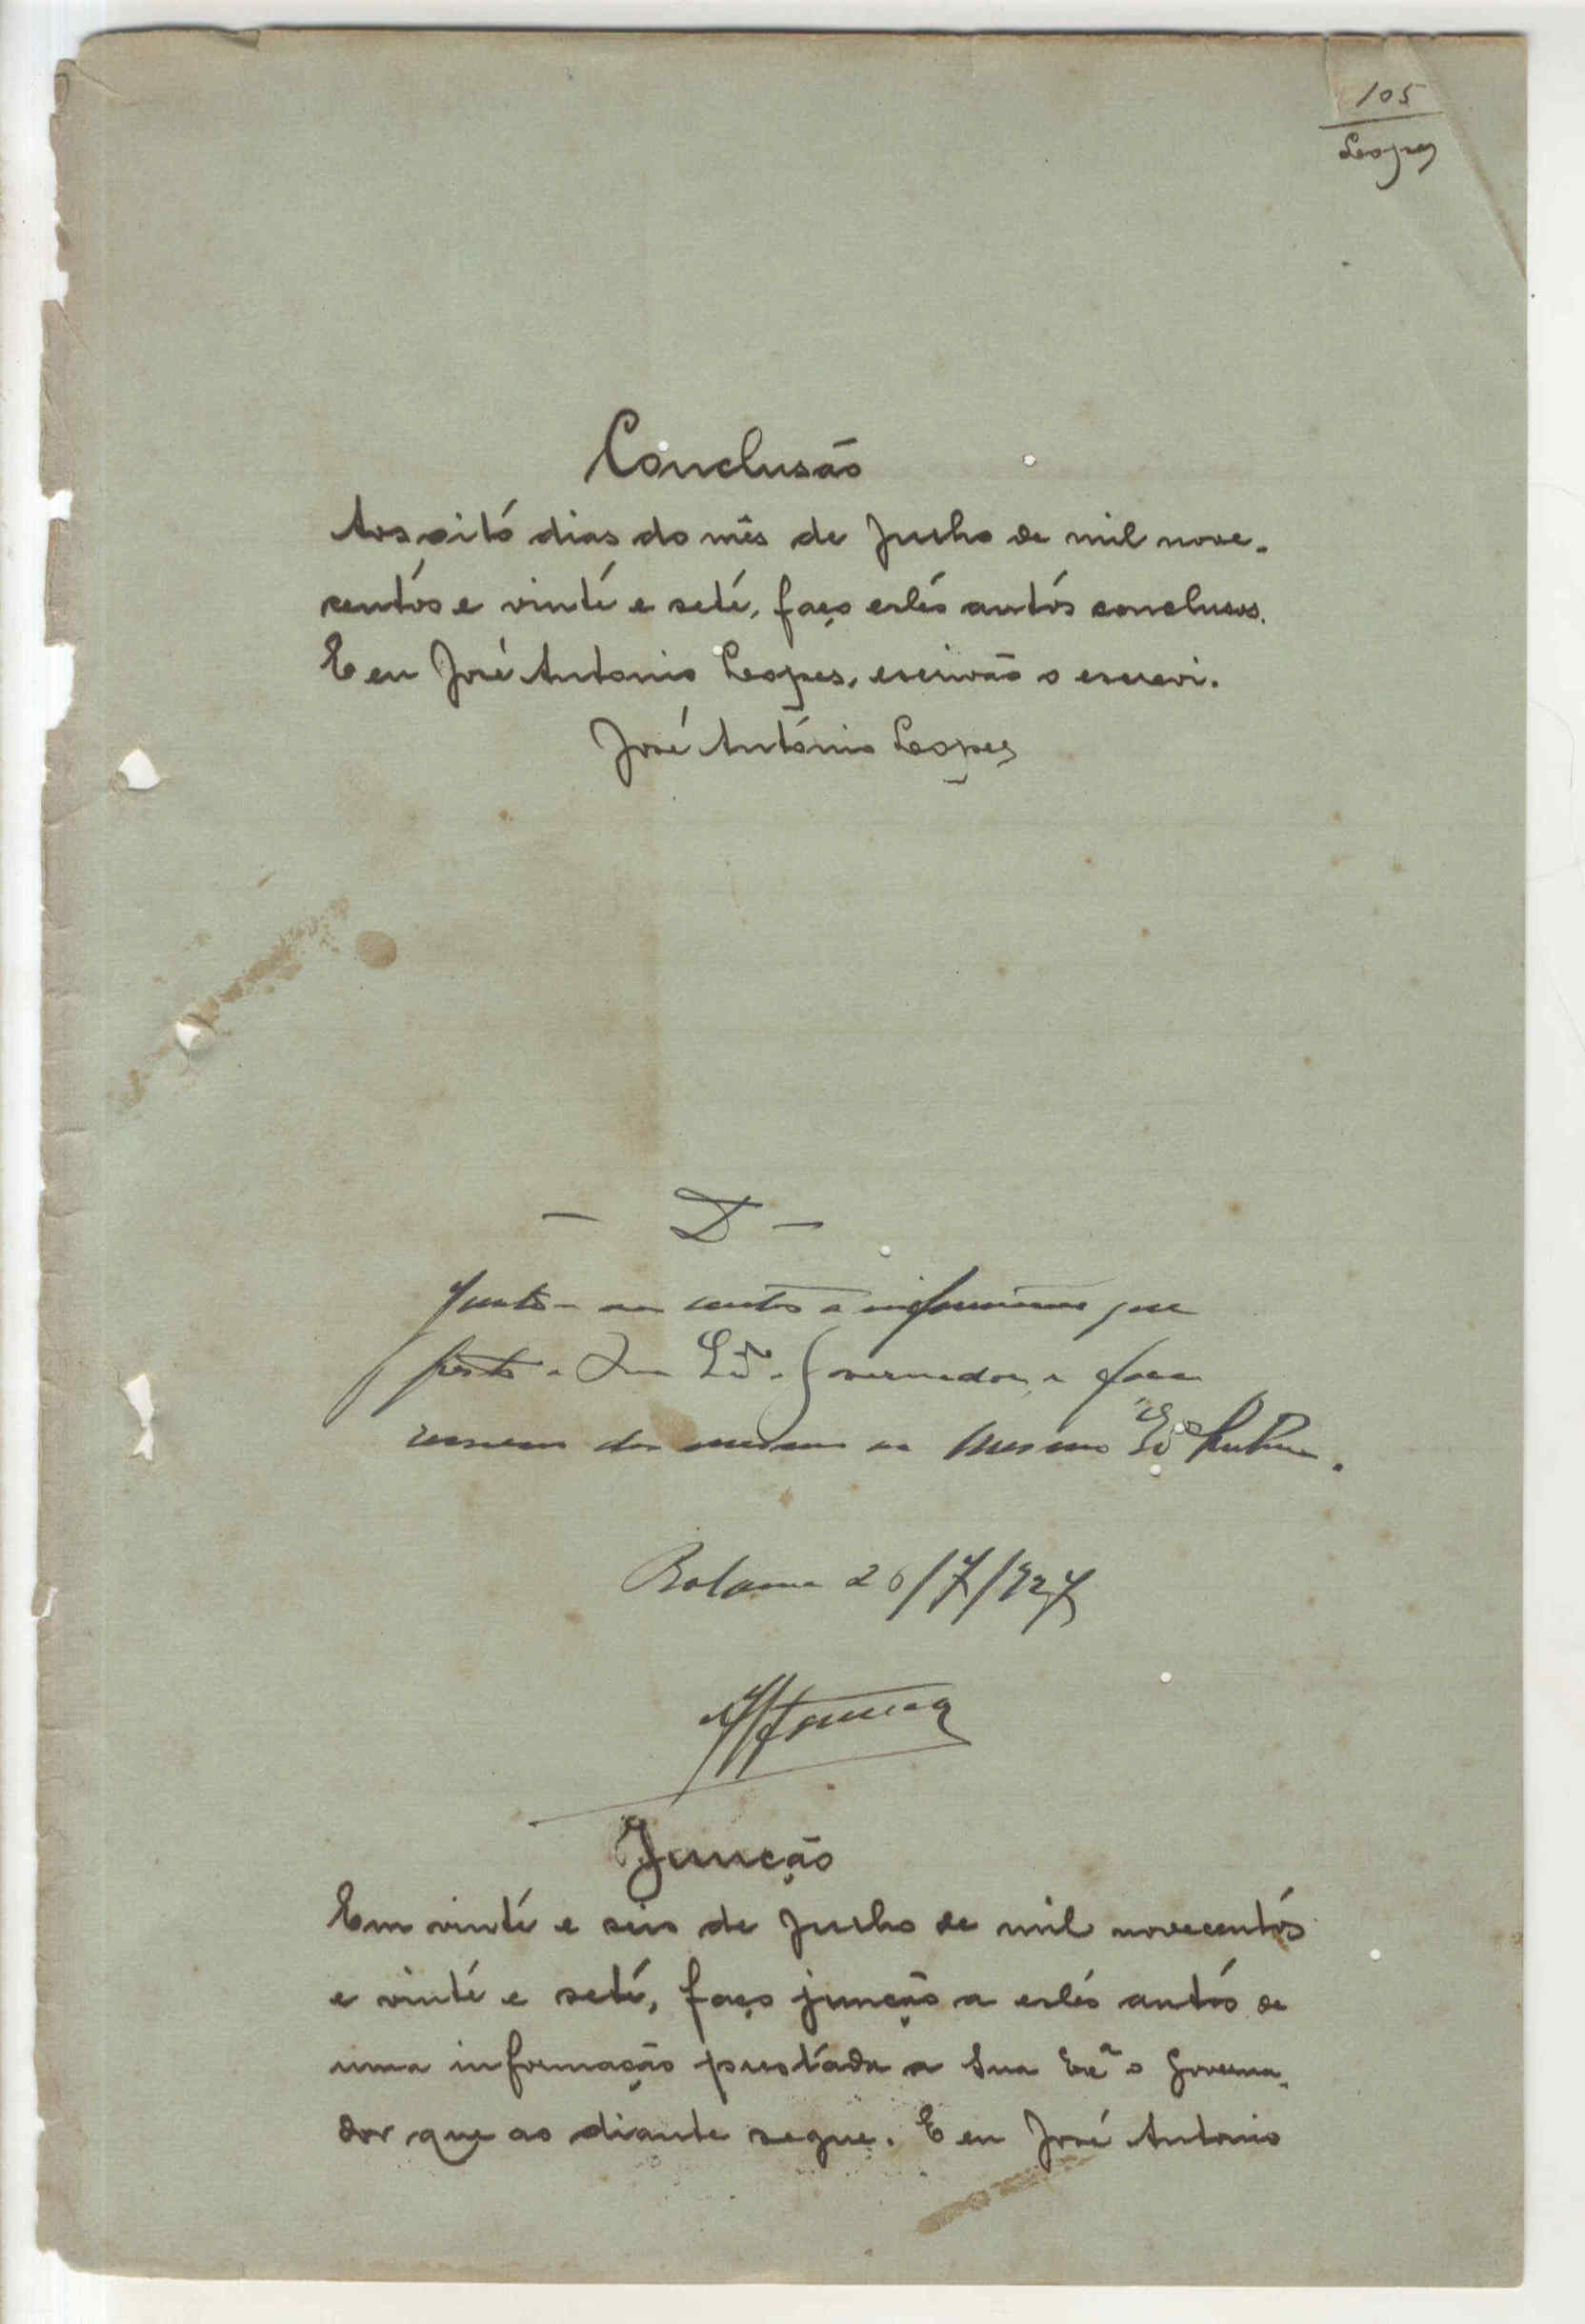 105
Lopes
Conclusão
Aos oito dias do mês de Julho de mil nove-
centos e vinte e sete, faço estes autos conclusos.
E eu José Antonio Lopes, escrivão o escrevi.
José António Lopes
— D —
Junte- aos autos a informação que
presto a Sua Exª. Governador, e faça
remessa dos mesmos ao mesmo Exº
Bolama 26/7/927
Junção
Em vinte e seis de Julho de mil novecentos
e vinte e sete, faço junção a estes autos de
uma informação prestada a Sua Exª o Governa-
dor que ao diante segue. E eu José Antonio